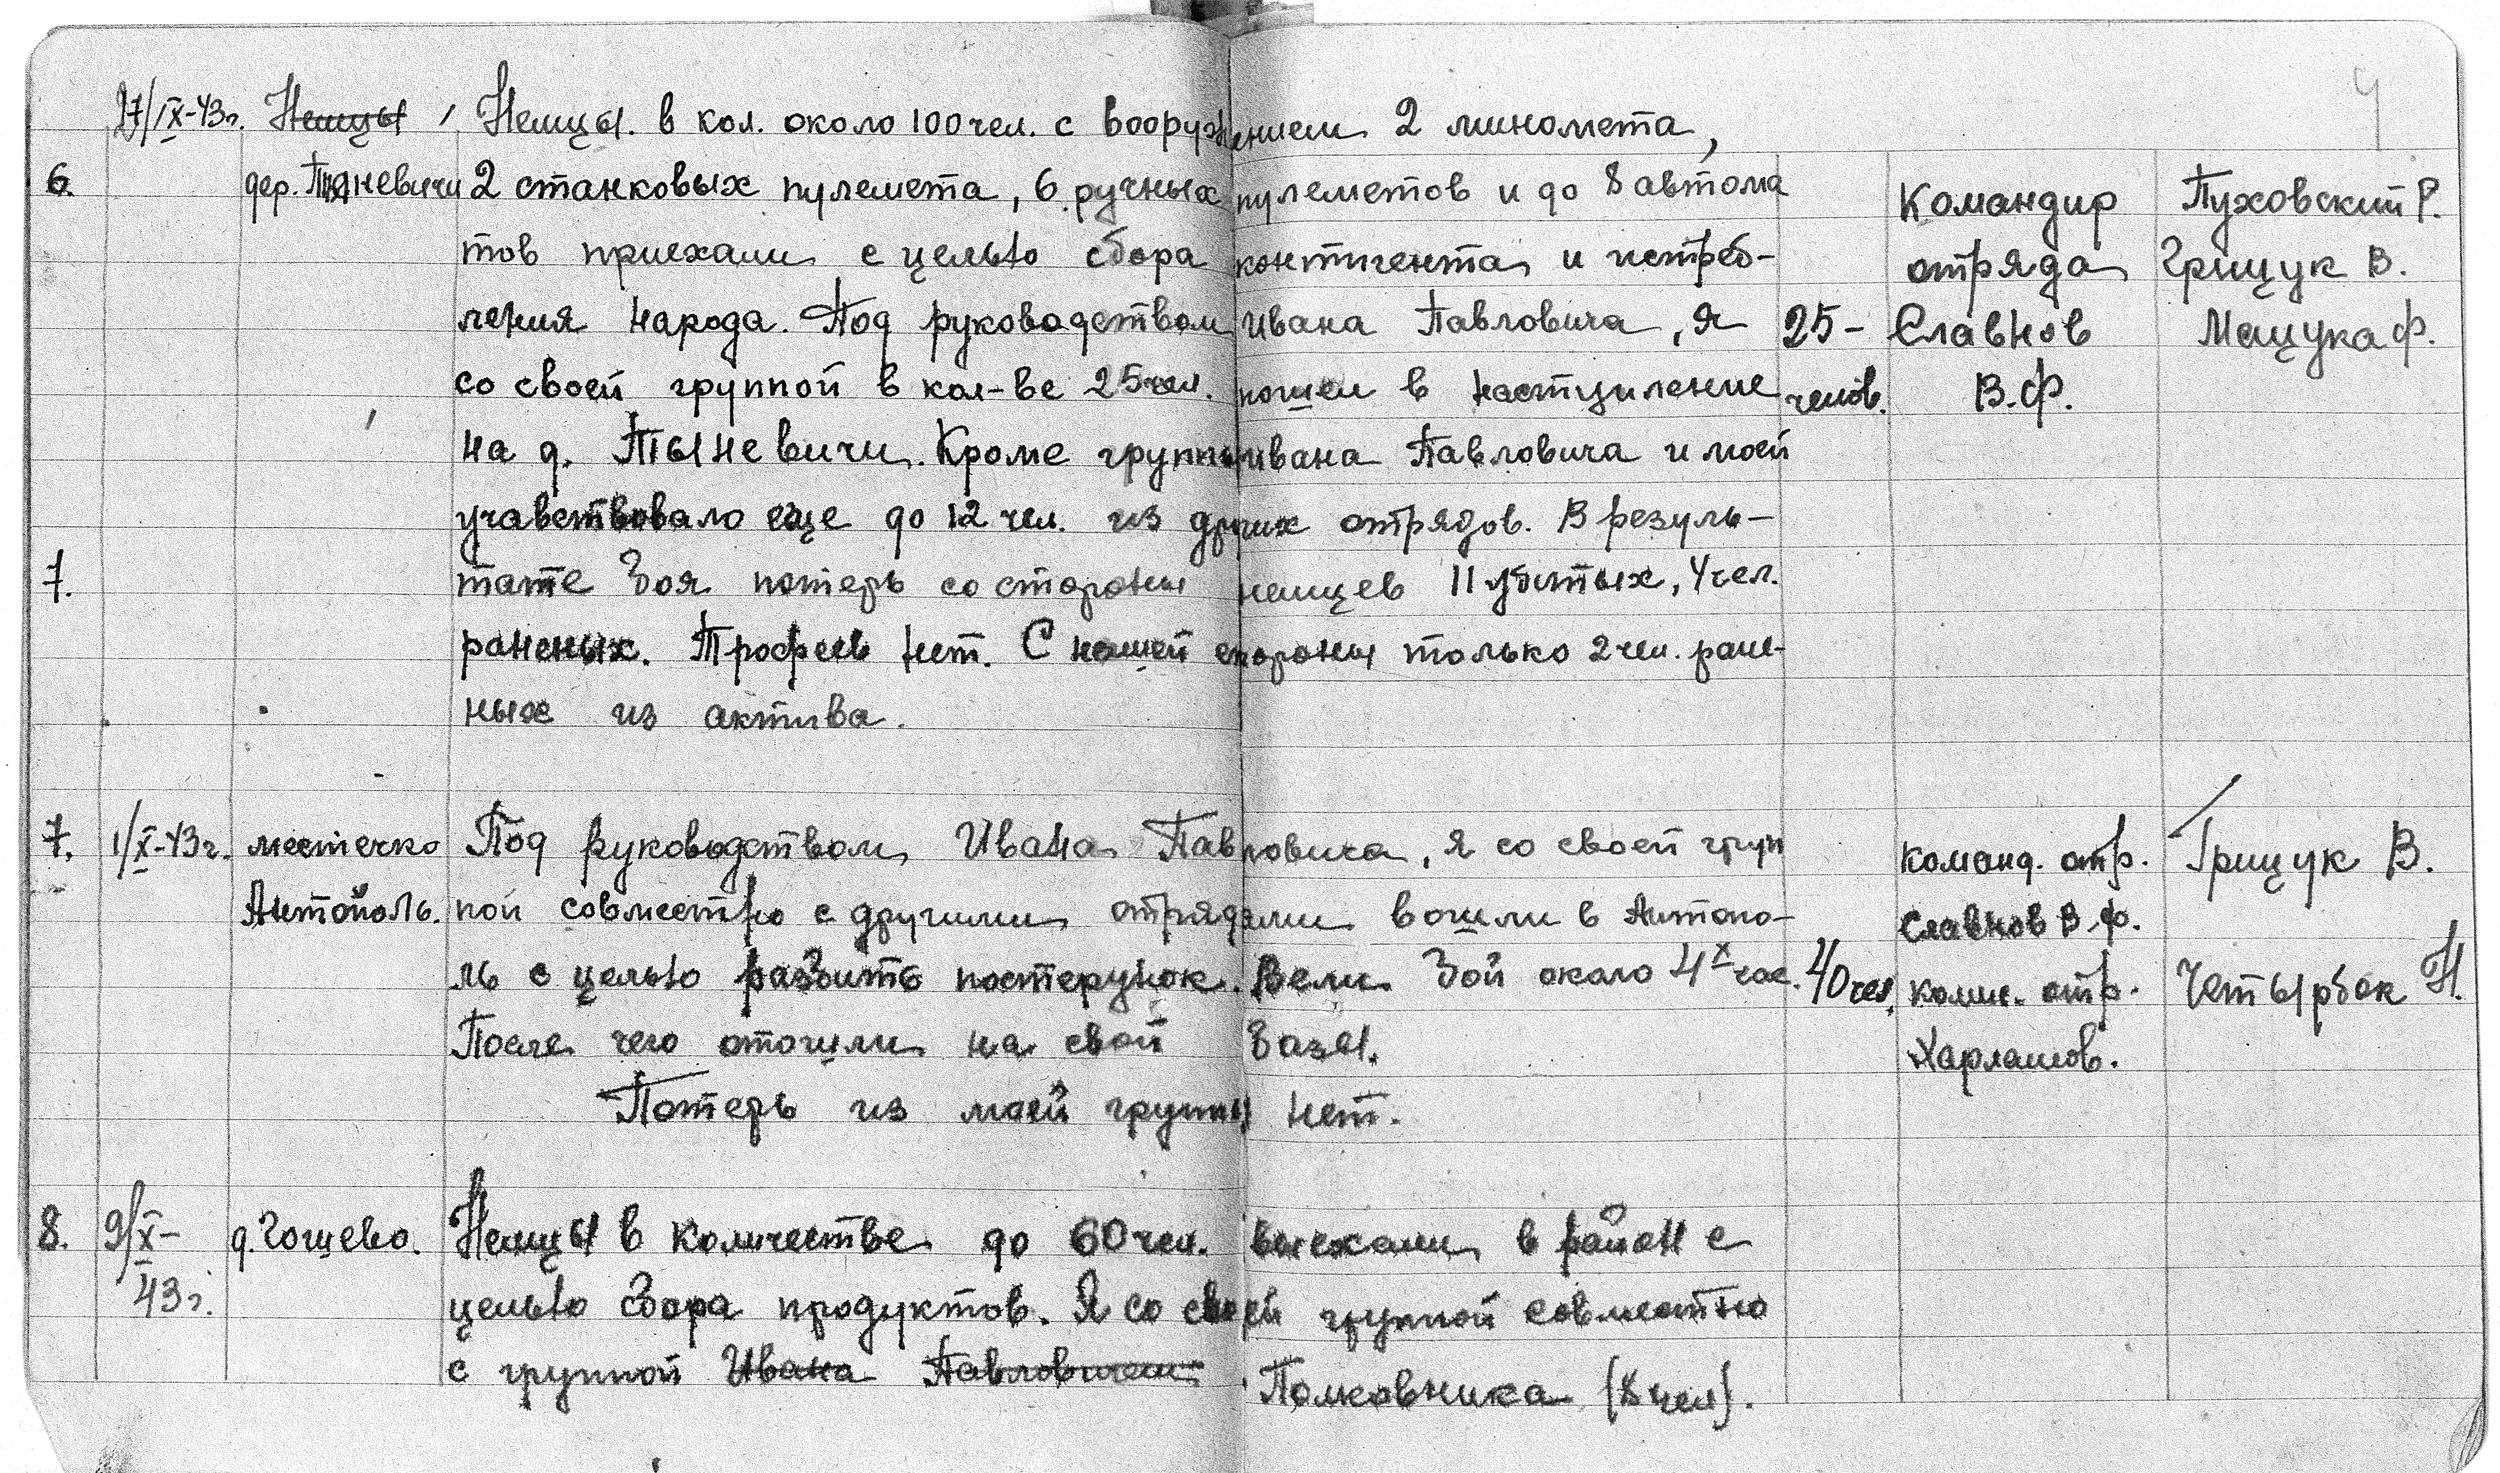 4
27/IX-43г. Немцы Немцы. в кол. около 100 чел. с вооружением 2 миномета,
6. дер. Тыневичи 2 станковых пулемета, 6 ручных пулеметов и до 8 автома Командир Пуховский Р.
тов приехали с целью сбора контигента и истреб- отряда Грищук В.
ления народа. Под руководством Ивана Павловича, я 25- Славнов Мацука Ф.
со своей группой в кол-ве 25 чел. пошел в наступление челов. В.Ф.
на д. Тыневичи. Кроме группы Ивана Павловича и моей
учавствовало еще до 12 чел. из других отрядов. В резуль-
7. тате боя потерь со стороны немцев 11 убитых, 4 чел.
раненых. Трофеев нет. С нашей стороны только 2 чел. ране-
ных из актива.
7. 1/X-43г. местечко Под руководством Ивана Павловича, я со своей груп команд. отр. Грищук В.
Антополь. пой совместно с другими отрядами вошли в Антопо- Славнов В.Ф.
ль с целью разбить постерунок. Вели бой около 4х час. 40 чел. комис. отр. Четырбок Н.
После чего отошли на свои базы. Харламов.
Потерь из моей группы нет.
8. 9/X- д. Гошево. Немцы в количестве до 60 чел. выехали в район с
43г. целью сбора продуктов. Я со своей группой совместно
с группой Ивана Павловичем Полковника (8 чел).